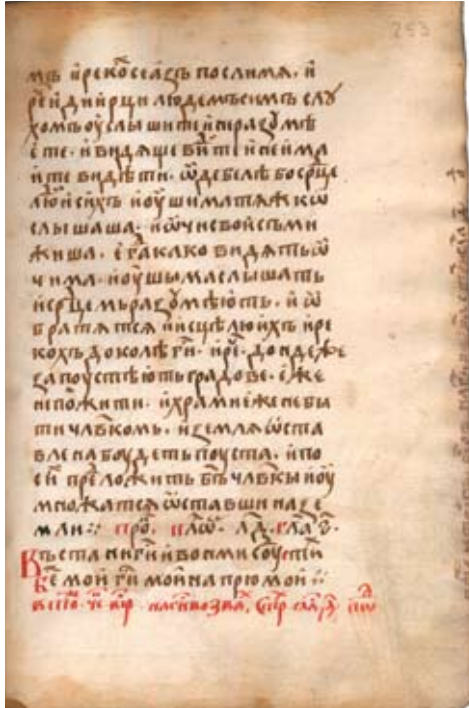 мъ и реко́ се а́зъ посли мѧ. и
рей и҆ди и҆ рци людемъ симъ слꙋ
хомъ оуслышите и не разꙋмѣ
ете. и видѧще виⷣте и не има
те видѣти. ѡдебелѣ бо срⷣце
люⷣи сихъ и оушима тѧжкѡ
слышаша. и ѡчи свои съми
жиша. е҆гⷣа како видѧть ѡ
чима. и оушыма слышать
и срⷣцемь разꙋмѣють. и ѡ
братѧтсѧ и исцѣлю ихъ и ре
кохъ доколѣ г҃и. и реⷱ. дондеже
запоустѣють градове. еже
не пожити. и храми еже не бы
ти чл҃вкомь. и землѧ ѡста
влена боудеть поуста. и по
сеи преложить б҃ъ чл҃вкы и оу
множатсѧ ѡставши на зе
мли ⁘ проⷦ. лд. глаⷭ г҃.
Въстани г҃и и вонми соуⷣ ти
б҃е мои г҃и мои на прю мои ⁘